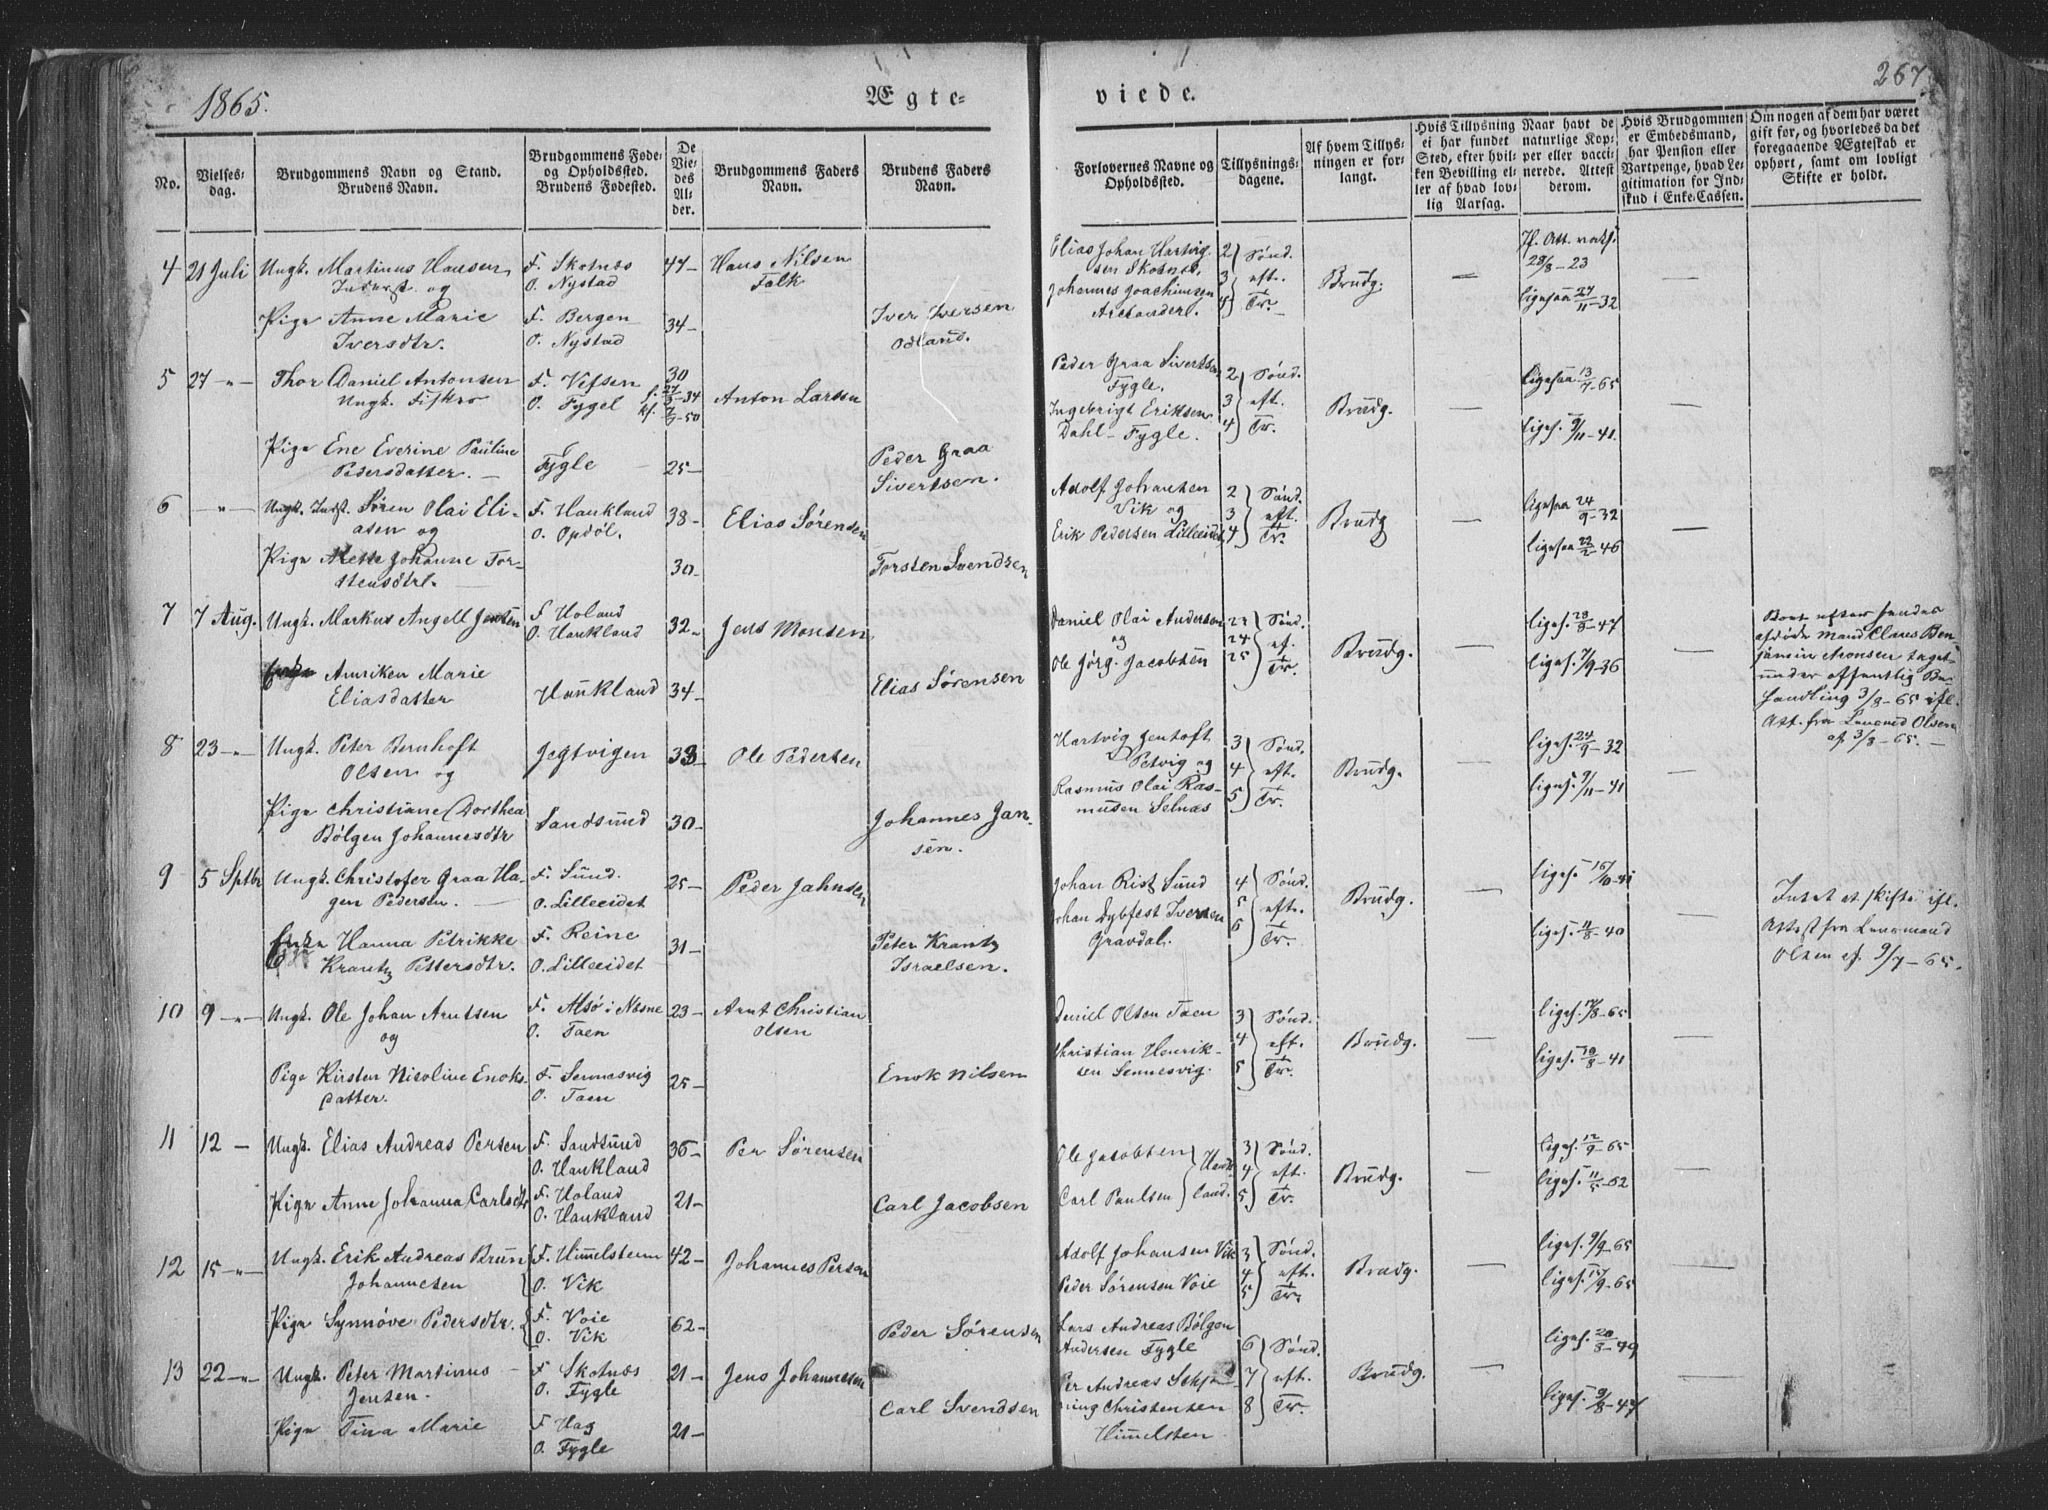 1865.
Ægte-
viede.
267
No.
Vielses-
dag.
Brudgommens Navn og Stand.
Brudens Navn.
Brudgommens Føde-
og Opholdssted.
Brudens Fødested.
De
Vie-
des
Al-
der.
Brudgommens Faders
Navn.
Brudens Faders
Navn.
Forlovernes Navne og
Opholdssted.
Tillysnings-
dagene.
Af hvem Tillys-
ningen er for-
langt.
Hvis Tillysning
ei har fundet
Sted, efter hvil-
ken Bevilling el-
ler af hvad lov-
lig Aarsag.
Naar havt de
naturlige Kop-
per eller vacci-
nerede. Attest
derom.
Hvis Brudgommen
er Embedsmand,
har Pension eller
Vartpenge, hvad Le-
gitimation for Ind-
skud i Enke-Cassen.
Om nogen af dem har været
gift før, og hvorledes da det
foregaaende Ægteskab er
ophørt, samt om lovligt
Skifte er holdt.
4 21 Juli Ungk. Martinus Hansen F. Skotnæs 47- Hans Nilsen
Inderst. og O. Nystad Falk
Elias Johan Hartvig-
sen Skotnæs,
Johannes Joachimsen
2 3 4 Sønd. eft. Tr. Brudg. —
If. Att. vaks.
28/8-23
ligesaa 27/11-32
Pige Anne Marie F. Bergen 34- Iver Iversen
Iversdtr. O. Nystad Odland.
5 27 -"- Thor Daniel Antonsen F. Vefsen 30 Anton Larsen
Ungk. Fisker O. Fygel f. 27/3-34
kf. 7/7-50
Peder Graa Sivertsen
Fygle.
Ingebrigt Eriksen
Dahl-Fygle.
2 3 4 Sønd. eft. Tr. Brudg. —
ligesaa 13/7-65
liges. 9/11-41.
Pige Ene Everine Pauline Fygle 25- Peder Graa
Pedersdatter. — Sivertsen.
6 -"- Ungk. Indst. Søren Olai Eli- F. Haukland 38- Elias Sørensen
asen og O. Opdøl.
Adolf Johansen
Vik og
Erik Pedersen Lilleeidet
2 3 4 Sønd. eft. Tr. Brudg —
ligesaa 24/9-32
ligesaa 22/2-46
Pige Mette Johanne Tor- 30- Torsten Svendsen
stensdtr. —
7 7 Aug. Ungk. Markus Angell Jensen F. Holand 32- Jens Monsen
O. Haukland
Daniel Olai Andersen
og
Ole Jørg. Jacobsen
23 24 25 Sønd. ef. Tr. Brudg. —
liges. 28/9-47
liges. 7/9-36
Boet efter hendes
afdøde Mand Claus Ben-
jamin Aronsen taget
under offentlig Be-
handling 3/8-65 ifl.
Att. fra Lensmd Olsen
af 3/8-65. —
Enke Anriken Marie Haukland 34- Elias Sørensen
Eliasdatter
8 23 -"- Ungk. Peter Bernhoft Jegtvigen 33 Ole Pedersen
Olsen og
Hartvig Jentoft
Petvig og
Rasmus Olai Ras-
mussen Selnæs
3 4 5 Sønd. eft. Tr. Brudg. —
liges. 24/9-32
liges. 9/11-41
Pige Christiane Dorthea Sandsund 30- Johannes Jan-
Bølgen Johannesdtr sen.
9 5 Sptbr Ungk. Christofer Graa Ha- F. Sund. 25- Peder Jahnsen
gen Pedersen. — O. Lilleeidet
Johan Rist Sund
Johan Dybfest Iversen
Gravdal.
4 5 6 Sønd. eft. Tr. Brudg. —
liges. 16/10-41
liges. 11/8-40
Intet at skifte ifl.
Attest fra Lensmand
Olsen af 9/7-65.
Enke Hanna Petrikke F. Reine 31- Peter Krantz
Krantz Pettersdtr. O. Lilleeidet Israelsen.
10 9 -"- Ungk. Ole Johan Arntsen F. Alsø i Næsne 23- Arnt Christian
og O. Taen Olsen
Daniel Olsen Taen
Christian Henrik-
sen Sennesvig.
3 4 5 Sønd. eft. Tr. Brudg. —
liges. 17/8-65
liges. 10/8-41
Pige Kirsten Nicoline Enoks- F. Sennesvig 25- Enok Nilsen
datter. O. Taen
11 12 - Ungk. Elias Andreas Persen F. Sandsund 36- Per Sørensen
O. Haukland
Ole Jacobsen
Carl Paulsen
Hauk-
land.
3 4 5 Sønd. eft. Tr. Brudg. —
liges. 12/9-65
liges. 11/5-52
Pige Anne Johanna Carlsdtr F. Holand 21- Carl Jacobsen
O. Haukland
12 15 -"- Ungk. Erik Andreas Brun F. Himelstenn 42- Johannes Person
Johannesen O. Vik
Adolf Johansen Vik
Peder Sørensen Voie
3 4 5 Sønd. eft. Tr. Brudg. —
liges. 9/9-65
liges. 15/9-65
Pige Synnøve Pedersdtr. F. Voie 62- Peder Sørensen
O. Vik
13 22 -"- Ungk. Peter Martinus F. Skotnæs 21- Jens Johannesen
Jensen. O. Fygle
Lars Andreas Bølgen
Andersen Fygle
Per Andreas Schjøn-
ning Christensen
Himelsten
6 7 8 Sønd. eft. Tr. Brudg. —
liges. 20/8-49
liges. 9/8-47
Pige Tina Marie F. Hag 21- Carl Svendsen
O. Fygle